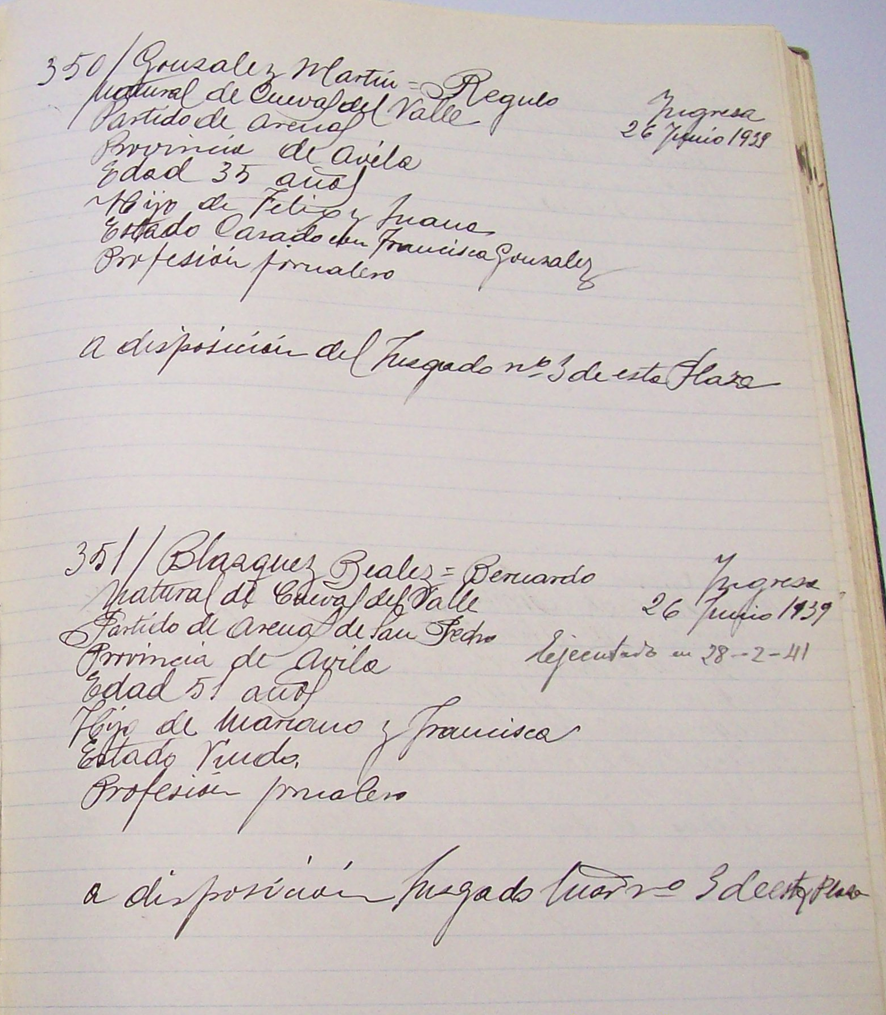 350/ Gonzalez Martin = Regulo
Natural de Cuevas del Valle
Ingresa
Partido de Arenas
26 Junio 1939
Provincia de Avila
Edad 35 años
Hijo de Felix y Juana
Estado Casado con Francisca Gonzalez
Profesión jornalero
a disposición del Juzgado nº 3 de esta Plaza
351// Blazquez = Bernardo
Ingresa
Natural de Cuevas del Valle
26 Junio 1939
Partido de Arenas de San Pedro
Ejecutado en 28-2-41
Provincia de Avila
Edad 51 años
Hijo de Mariano y Francisca
Estado Viudo.
Profesión jornalero
a disposición Juzgado nº 3 de esta Plaza